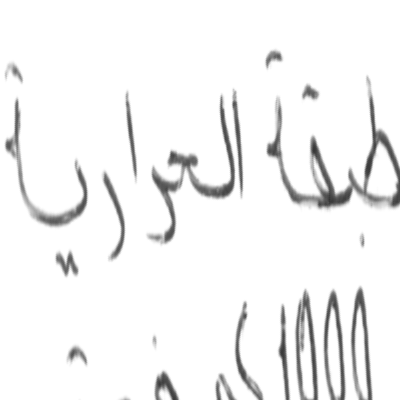 طبقة الحرارية
1000 كم